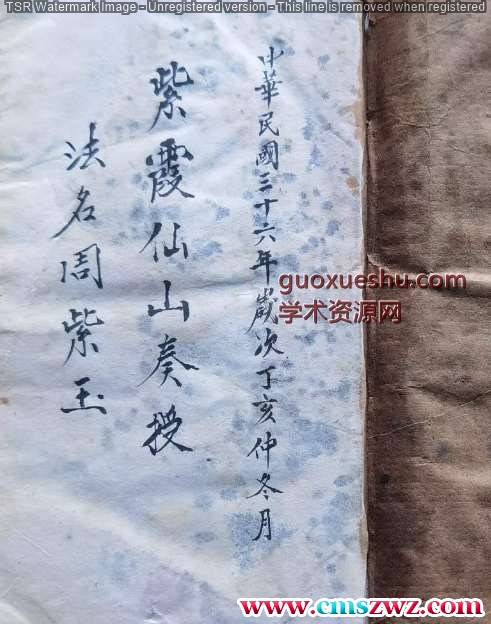 TSR Watermark Image - Unregistered version - This line is removed when registered
中華民國三十六年歲次丁亥仲冬月
紫霞仙山奏授
法名周紫玉
guoxueshu.com
学术资源网
www.cmszwz.com